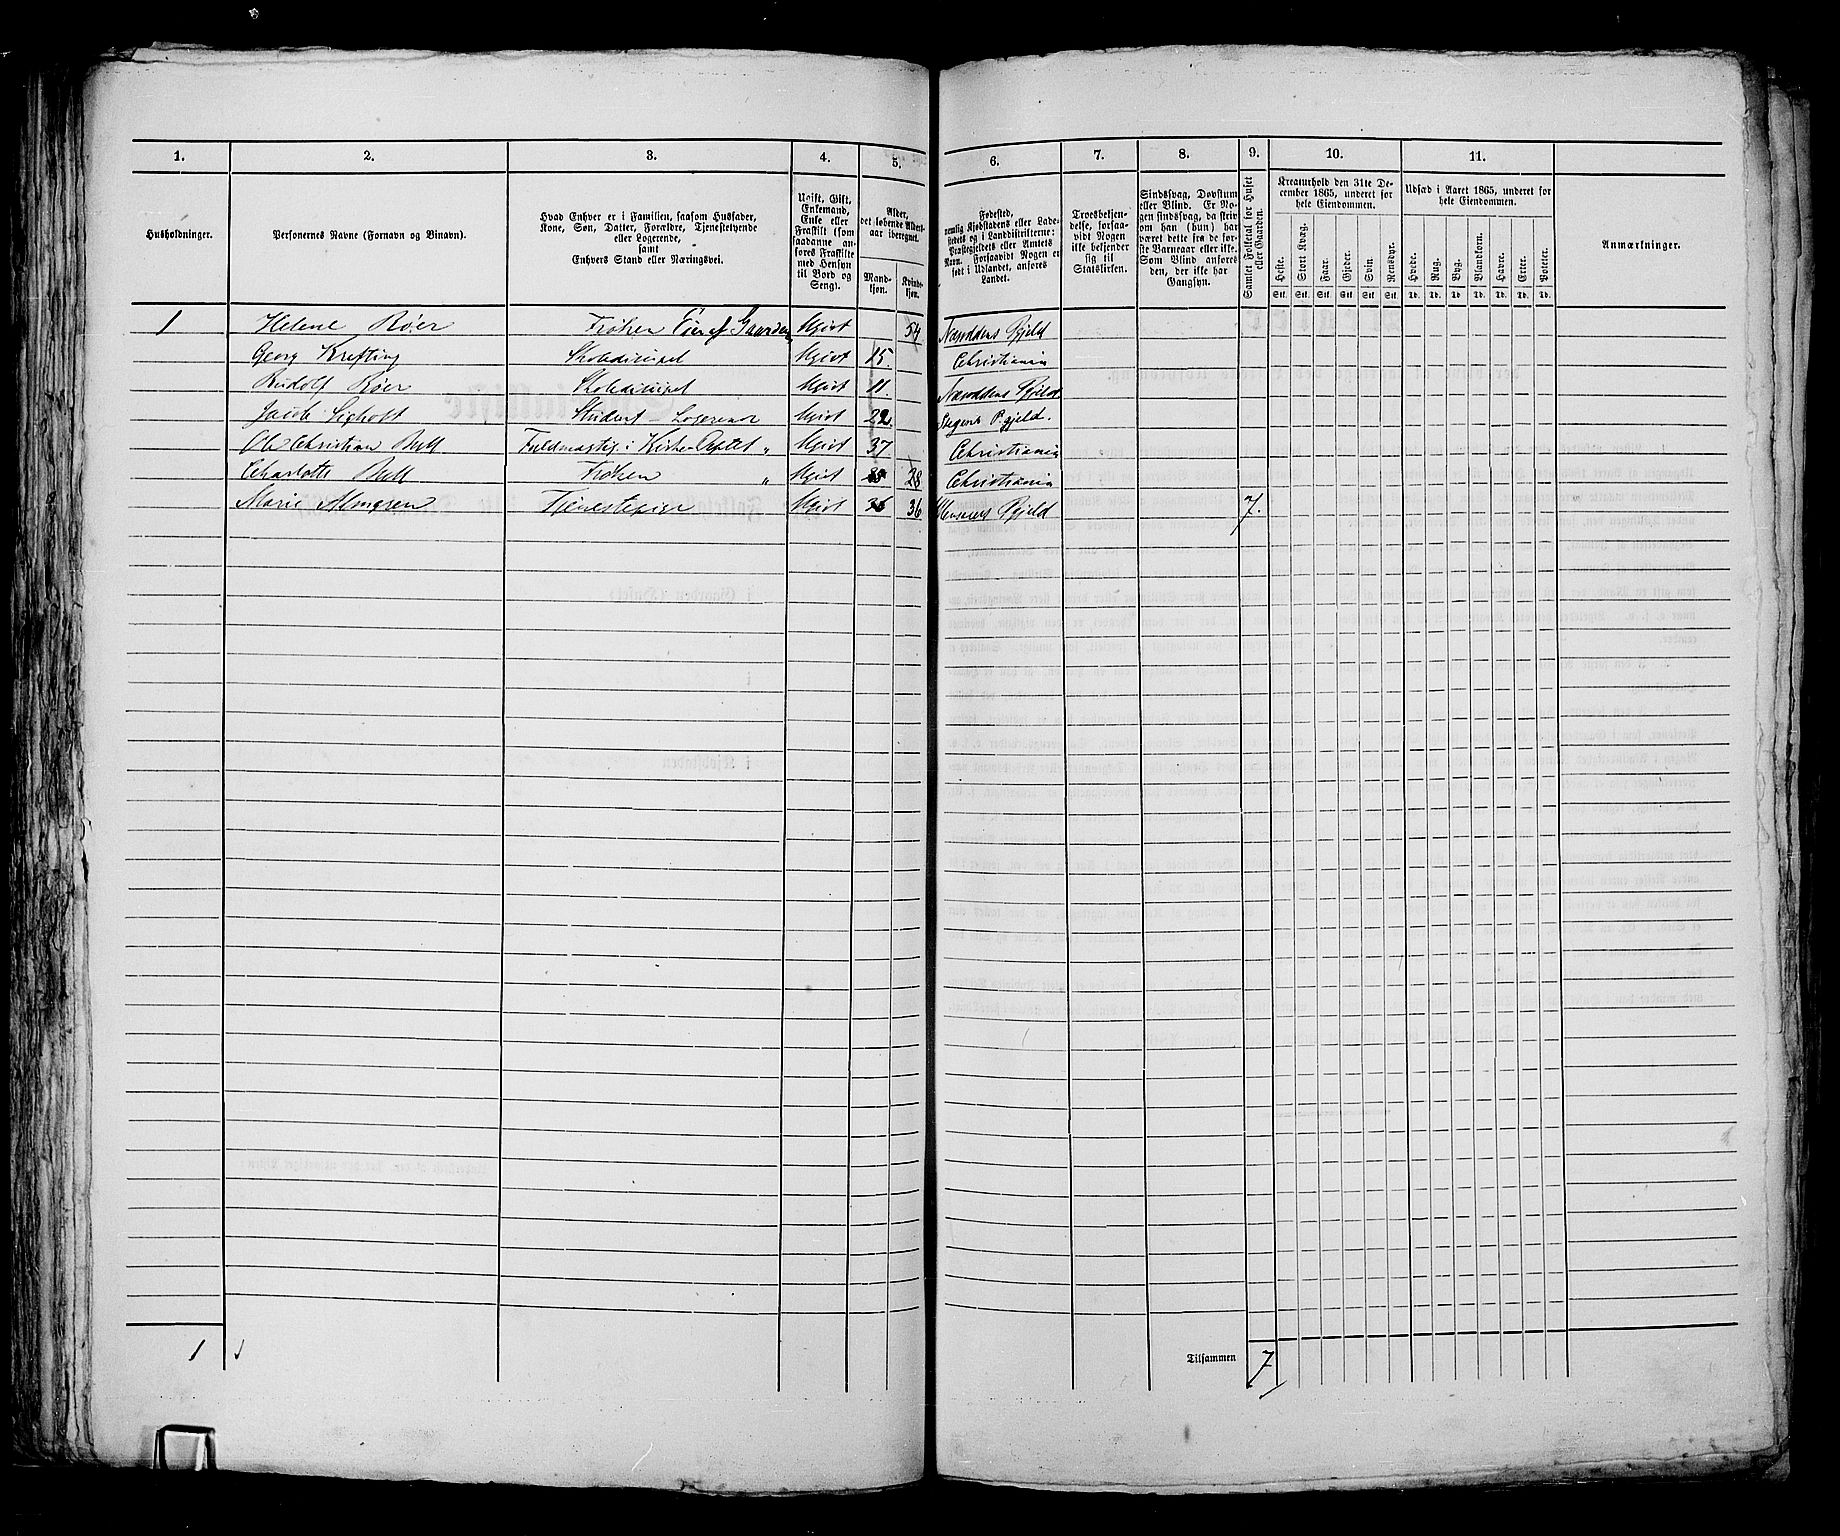 1. 2. 3. 4. 5. 6. 7. 8. 9. 10. 11.
Husholdninger.
Personernes Navne (Fornavn og Binavn).
Hvad Enhver er i Familien, saasom Husfader,
Kone, Søn, Datter, Forældre, Tjenestetyende
eller Logerende,
samt
Enhvers Stand eller Næringsvei.
Ugift, Gift,
Enkemand,
Enke eller
Fraskilt (som
saadanne an-
føres Fraskilte
med Hensyn
til Bord og
Seng).
Alder,
det løbende Alders-
aar iberegnet.
Mand-
kjøn.
Kvinde-
kjøn.
Fødested,
nemlig Kjøbstadens eller Lade-
stedets og i Landdistrikterne:
Præstegjeldets eller Amtets
Navn. Forsaavidt Nogen er
født i Udlandet, anføres
Landet.
Troesbekjen-
delse, forsaa-
vidt Nogen
ikke bekjender
sig til
Statskirken.
Sindssvag, Døvstum
eller Blind. Er No-
gen sindssvag, da skriv
om han (hun) har
været dette fra de før-
ste Barneaar eller ikke.
Som Blind anføres
den, der ikke har
Gangsyn.
Samlet Folketal for Huset
eller Gaarden.
Kreaturhold den 31te De-
cember 1865, underet for
hele Eiendommen.
Heste. Stort Kvæg. Faar. Gjeder. Svin. Rensdyr.
Stk. Stk. Stk. Stk. Stk. Stk.
Udsæd i Aaret 1865, underet for
hele Eiendommen.
Hvede. Rug. Byg. Blandkorn. Havre. Erter. Poteter.
Td. Td. Td. Td. Td. Td. Td.
Anmærkninger.
1 Helene Röer Fröken Eier af Gaarden Ugivt 54 Næsoddens Pgjeld
Georg Krefting Skoledisipel Ugivt 15. Christiania
Rudolf Röer Skoledisipel Ugivt 11. Næsoddens Pgjeld
Jacob Sigholt Student - Logerende Ugivt 22. P.gjeld.
Ole Christian Bull Fuldmægtig i Kirke Deptet " Ugivt 37 Christiania
Charlotte Bull Fröken " Ugivt 28 Christiania
Marie Almgren Tjenestepige Ugivt 36 36 Pgjeld 7.
1 Tilsammen 7